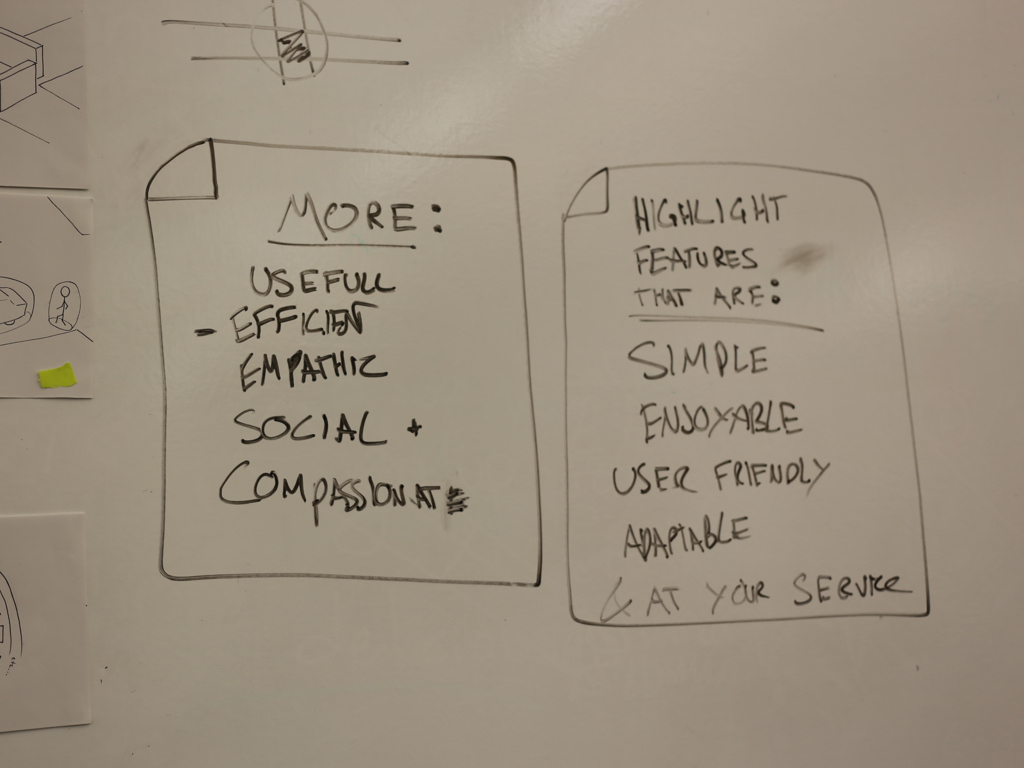 MORE:
USEFULL
- EFFICIENT
EMPATHIC
SOCIAL +
COMPASSIONATE
HIGHLIGHT
FEATURES
THAT ARE:
SIMPLE
ENJOYABLE
USER FRIENDLY
ADAPTABLE
& AT YOUR SERVICE